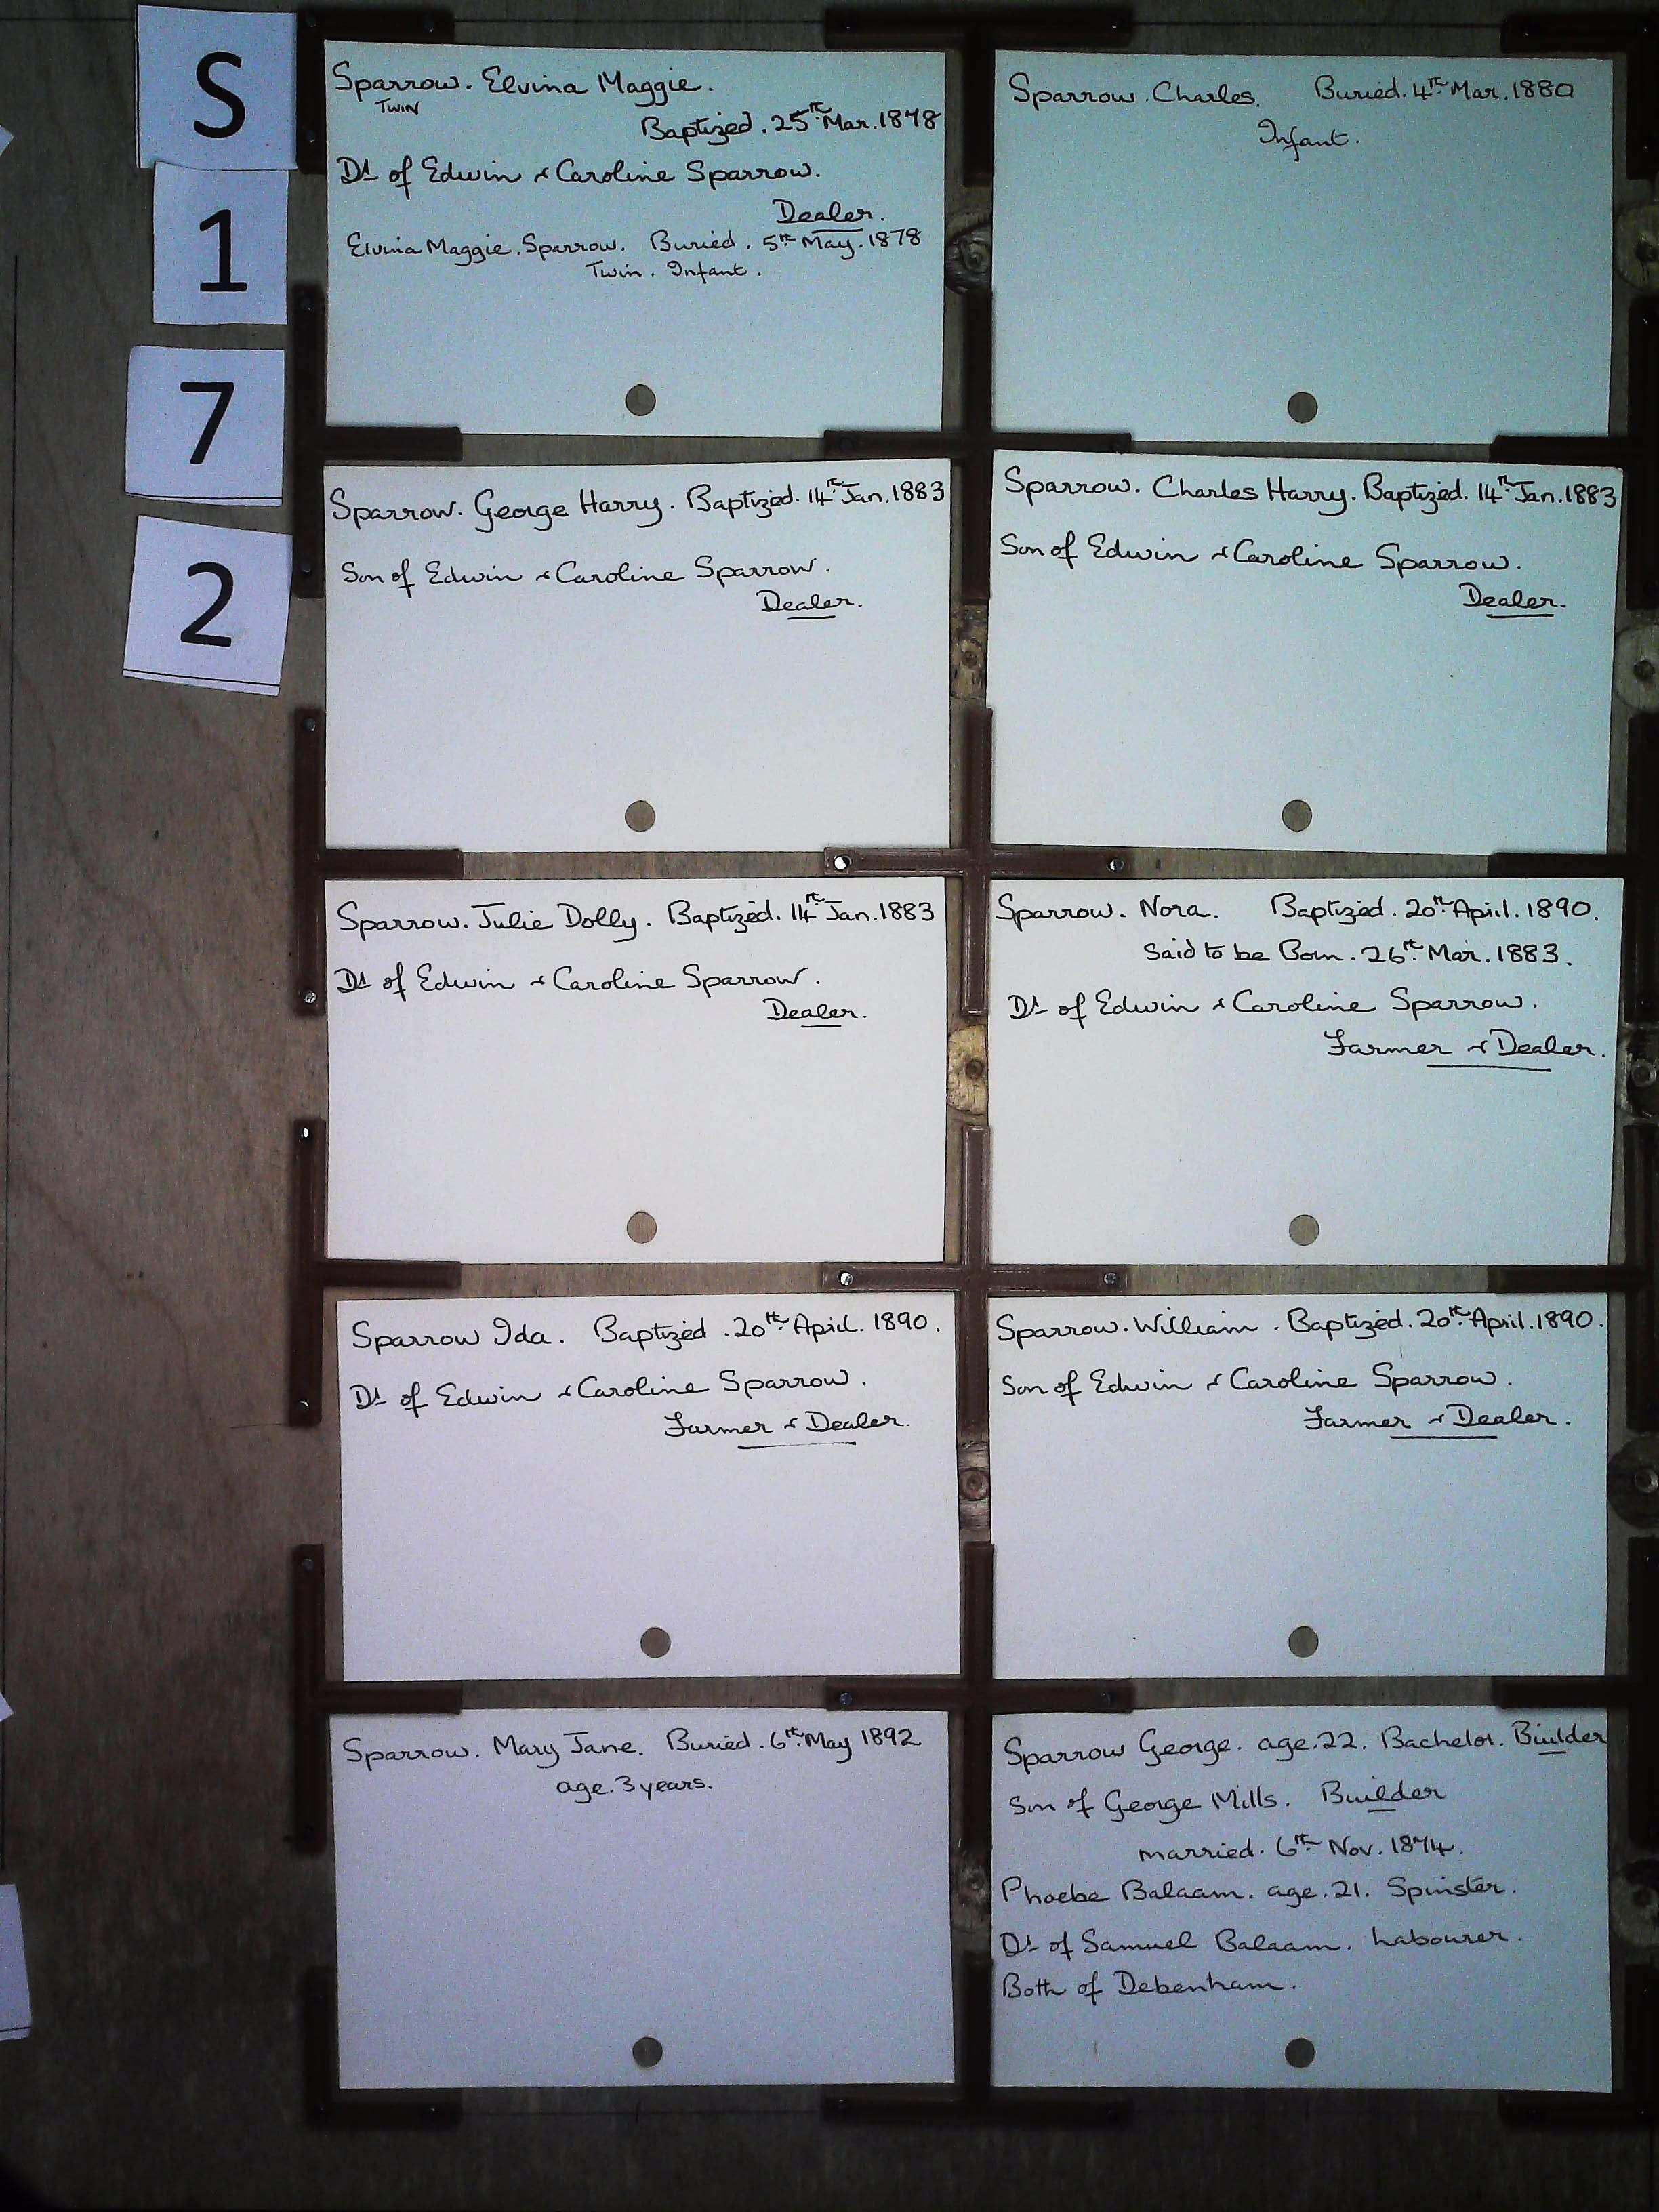 S
1
7
2
Sparrow. Elvina Maggie.
Twin
Baptized. 25th Mar. 1878
Dt of Edwin & Caroline Sparrow.
Dealer.
Elvina Maggie. Sparrow. Buried. 5th May. 1878
Twin. Infant.
Sparrow. Charles. Buried. 4th Mar. 1880
Infant.
Sparrow. George Harry. Baptized. 14th Jan. 1883
Son of Edwin & Caroline Sparrow.
Dealer.
Sparrow. Charles Harry. Baptized. 14th Jan. 1883
Son of Edwin & Caroline Sparrow.
Dealer.
Sparrow. Julie Dolly. Baptized. 14th Jan. 1883
Dt of Edwin & Caroline Sparrow.
Dealer.
Sparrow. Nora. Baptized. 20th April. 1890.
Said to be Born. 26th Mar. 1883.
Dt of Edwin & Caroline Sparrow.
Farmer & Dealer.
Sparrow Ida. Baptized. 20th April. 1890.
Dt of Edwin & Caroline Sparrow.
Farmer & Dealer.
Sparrow. William. Baptized. 20th April. 1890.
Son of Edwin & Caroline Sparrow.
Farmer & Dealer.
Sparrow. Mary Jane. Buried. 6th May 1892
age. 3 years.
Sparrow George. age. 22. Bachelor. Builder
Son of George Mills. Builder
married. 6th Nov. 1874.
Phoebe Balaam. age. 21. Spinster.
Dt of Samuel Balaam. Labourer.
Both of Debenham.